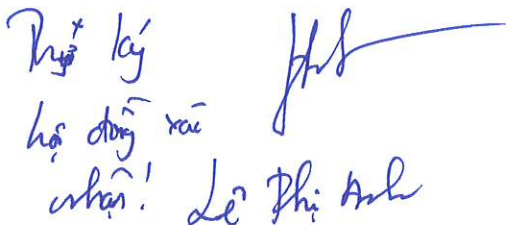 Thư ký
hội đồng xác
nhận! Lê Phị Anh